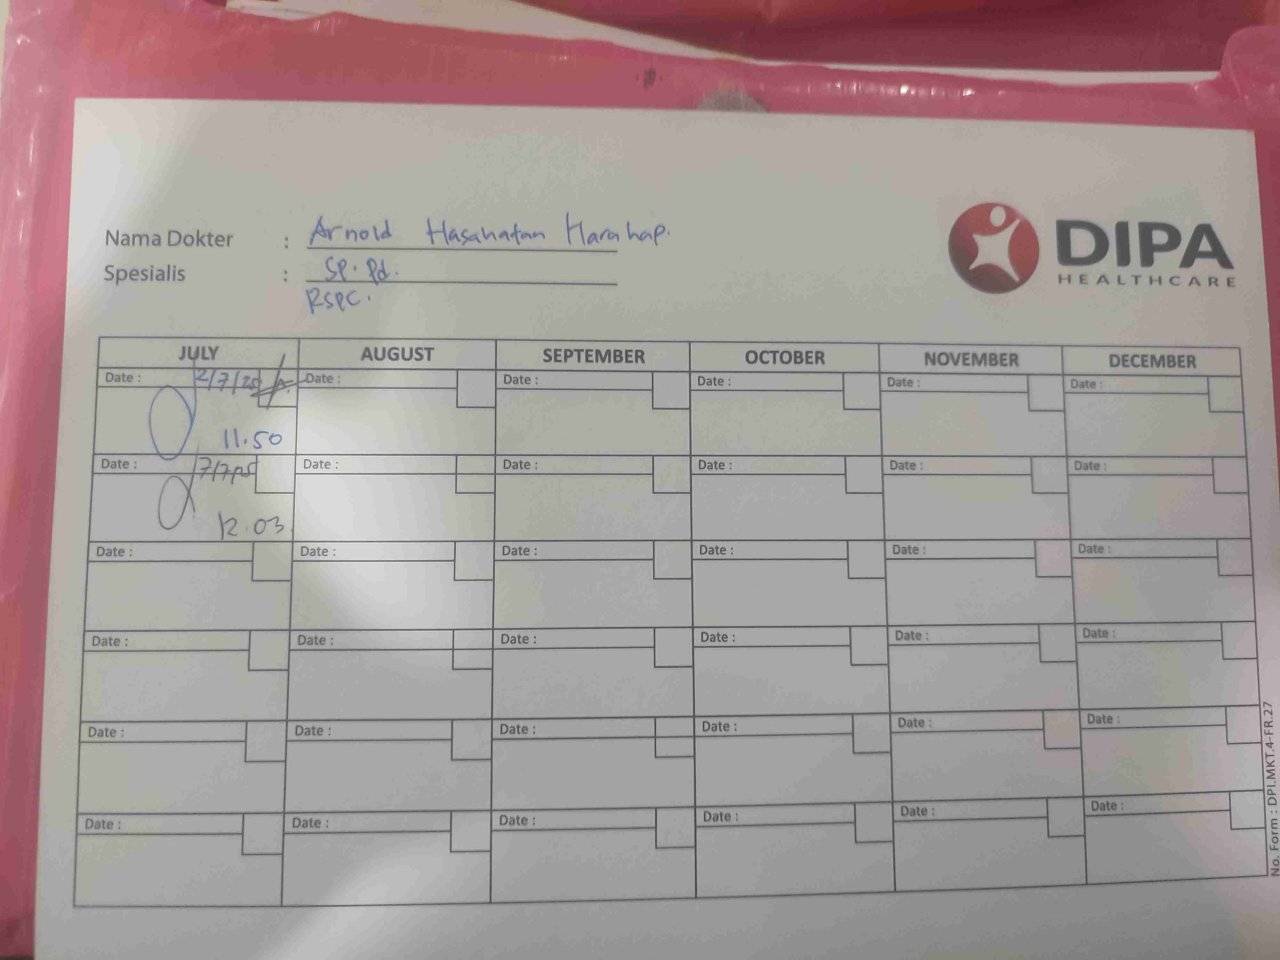 DIPA
HEALTHCARE
Nama Dokter : Arnold Hasahatan Harahap.
Spesialis : Sp.Pd.
RSPC.
JULY AUGUST SEPTEMBER OCTOBER NOVEMBER DECEMBER
Date : 2/7/25 Date : Date : Date : Date : Date :
11.50
Date : 7/7/25 Date : Date : Date : Date : Date :
12.03
Date : Date : Date : Date : Date : Date :
Date : Date : Date : Date : Date : Date :
Date : Date : Date : Date : Date : Date :
Date : Date : Date : Date : Date : Date :
No. Form : DPI.MKT.4-FR.27